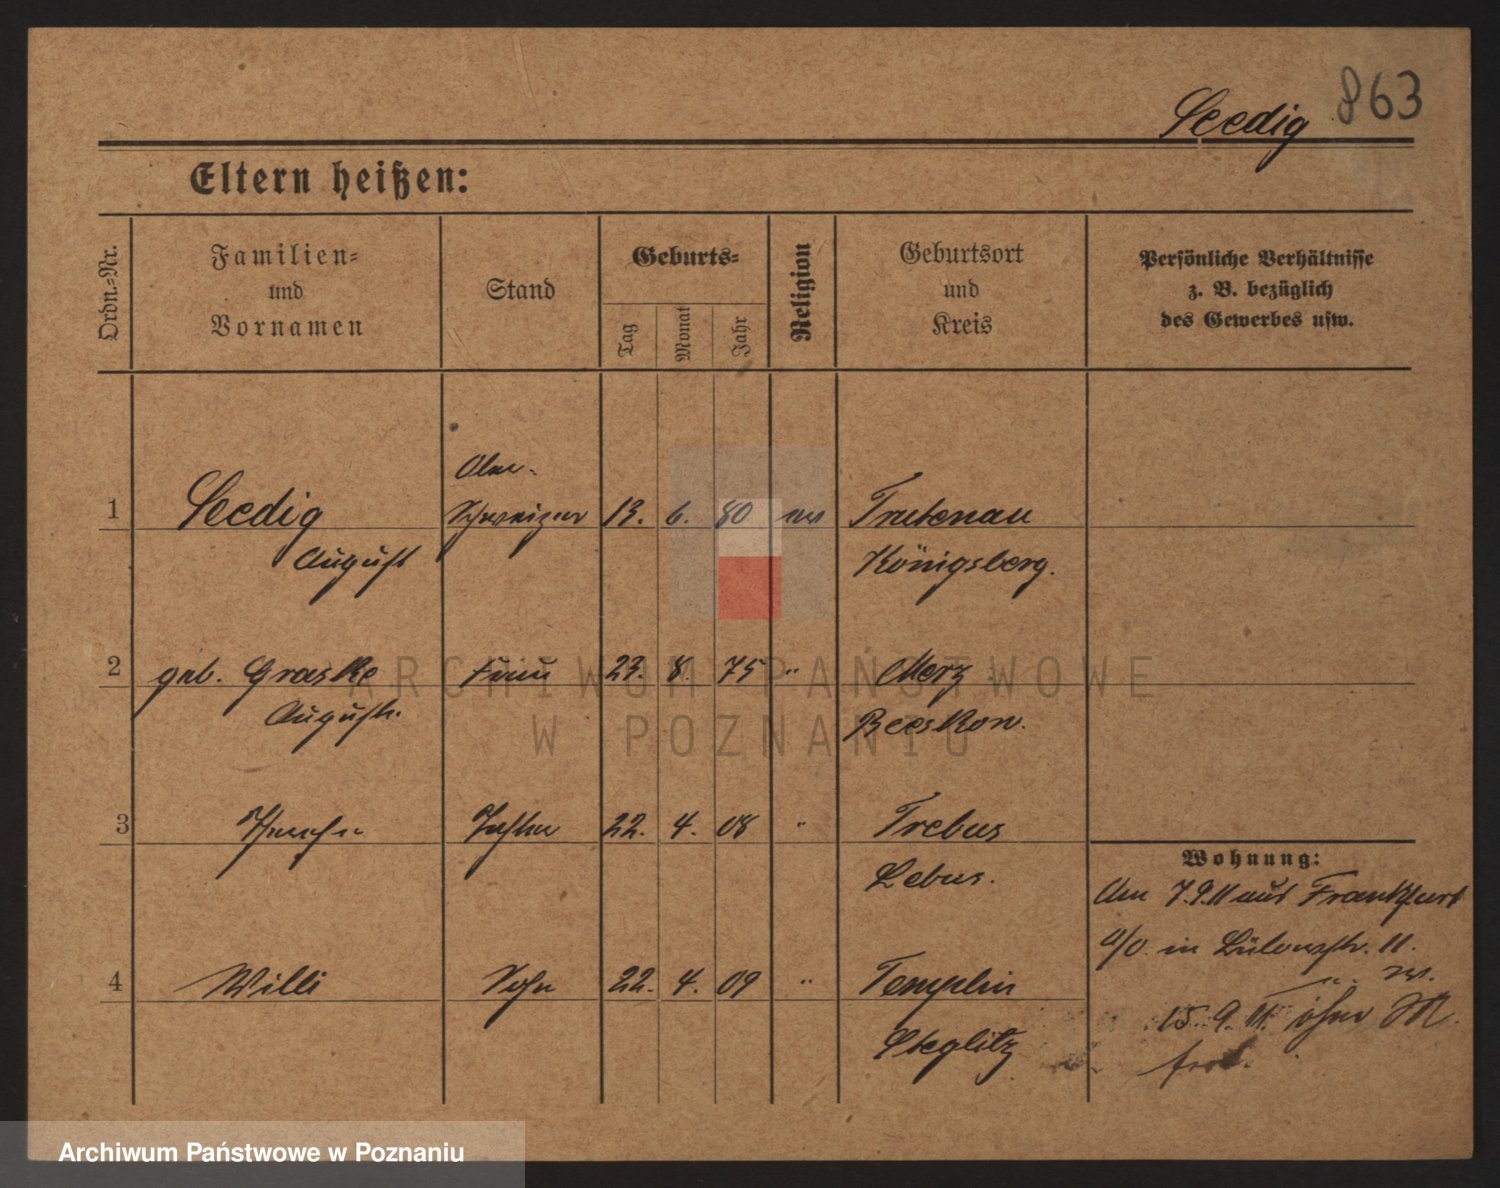 863
Seedig
Eltern heißen:
Ordn.-Nr.
Familien-
und
Vornamen
Stand
Geburts-
Tag
Monat
Jahr
Religion
Geburtsort
und
Kreis
Persönliche Verhältnisse
z. B. bezüglich
des Gewerbes usw.
Ober-
1 Seedig Schweizer 13. 6. 80 ev Trutenau
August Königsberg.
2 geb. Graske Frau 23. 8. 75 " Merz
August. Beeskow.
3 Tochter 22. 4. 08 " Trebus
Lebus.
4 Willi Sohn 22. 4. 09 " Templin
Steglitz
Wohnung:
Am 7.9.11 aus Frankfurt
a/O. in 11.
15. 9. 11. ohne
fort.
ARCHIWUM PAŃSTWOWE
W POZNANIU
Archiwum Państwowe w Poznaniu